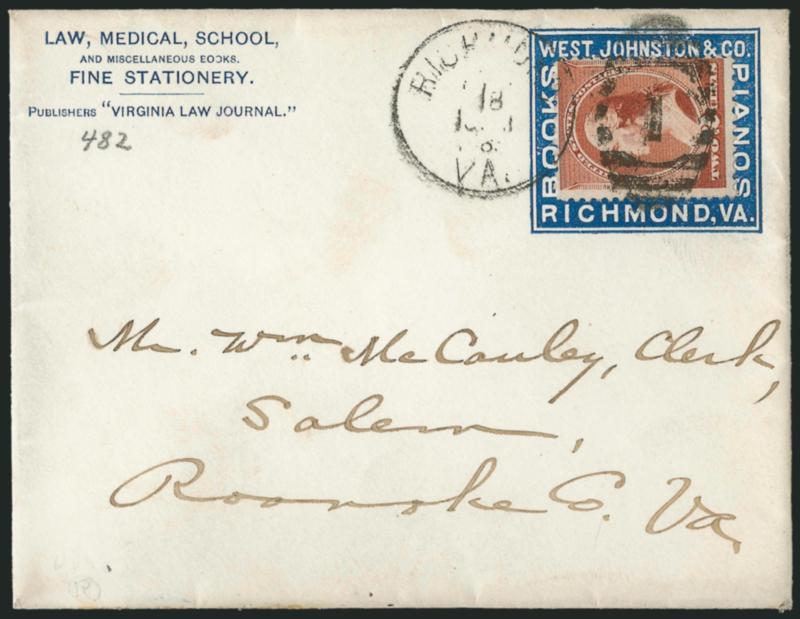 LAW, MEDICAL, SCHOOL,
AND MISCELLANEOUS BOOKS.
FINE STATIONERY.
PUBLISHERS "VIRGINIA LAW JOURNAL."
482
RICHMOND
18
VA.
WEST, JOHNSTON & CO.
BOOKS
PIANOS
RICHMOND, VA.
Mr. Wm. McCauley, Clerk,
Salem,
Roanoke Co. Va.